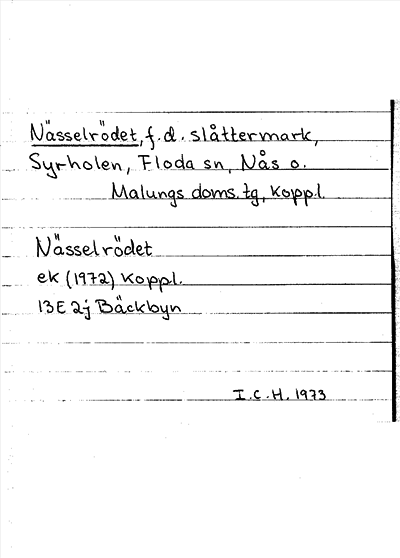 Nässelrödet, f.d. slåttermark,
Syrholen, Floda sn, Nås o.
Malungs doms.tg, Koppl.
Nässelrödet
ek (1972) Koppl.
13E 2j Bäckbyn
I.C.H. 1973